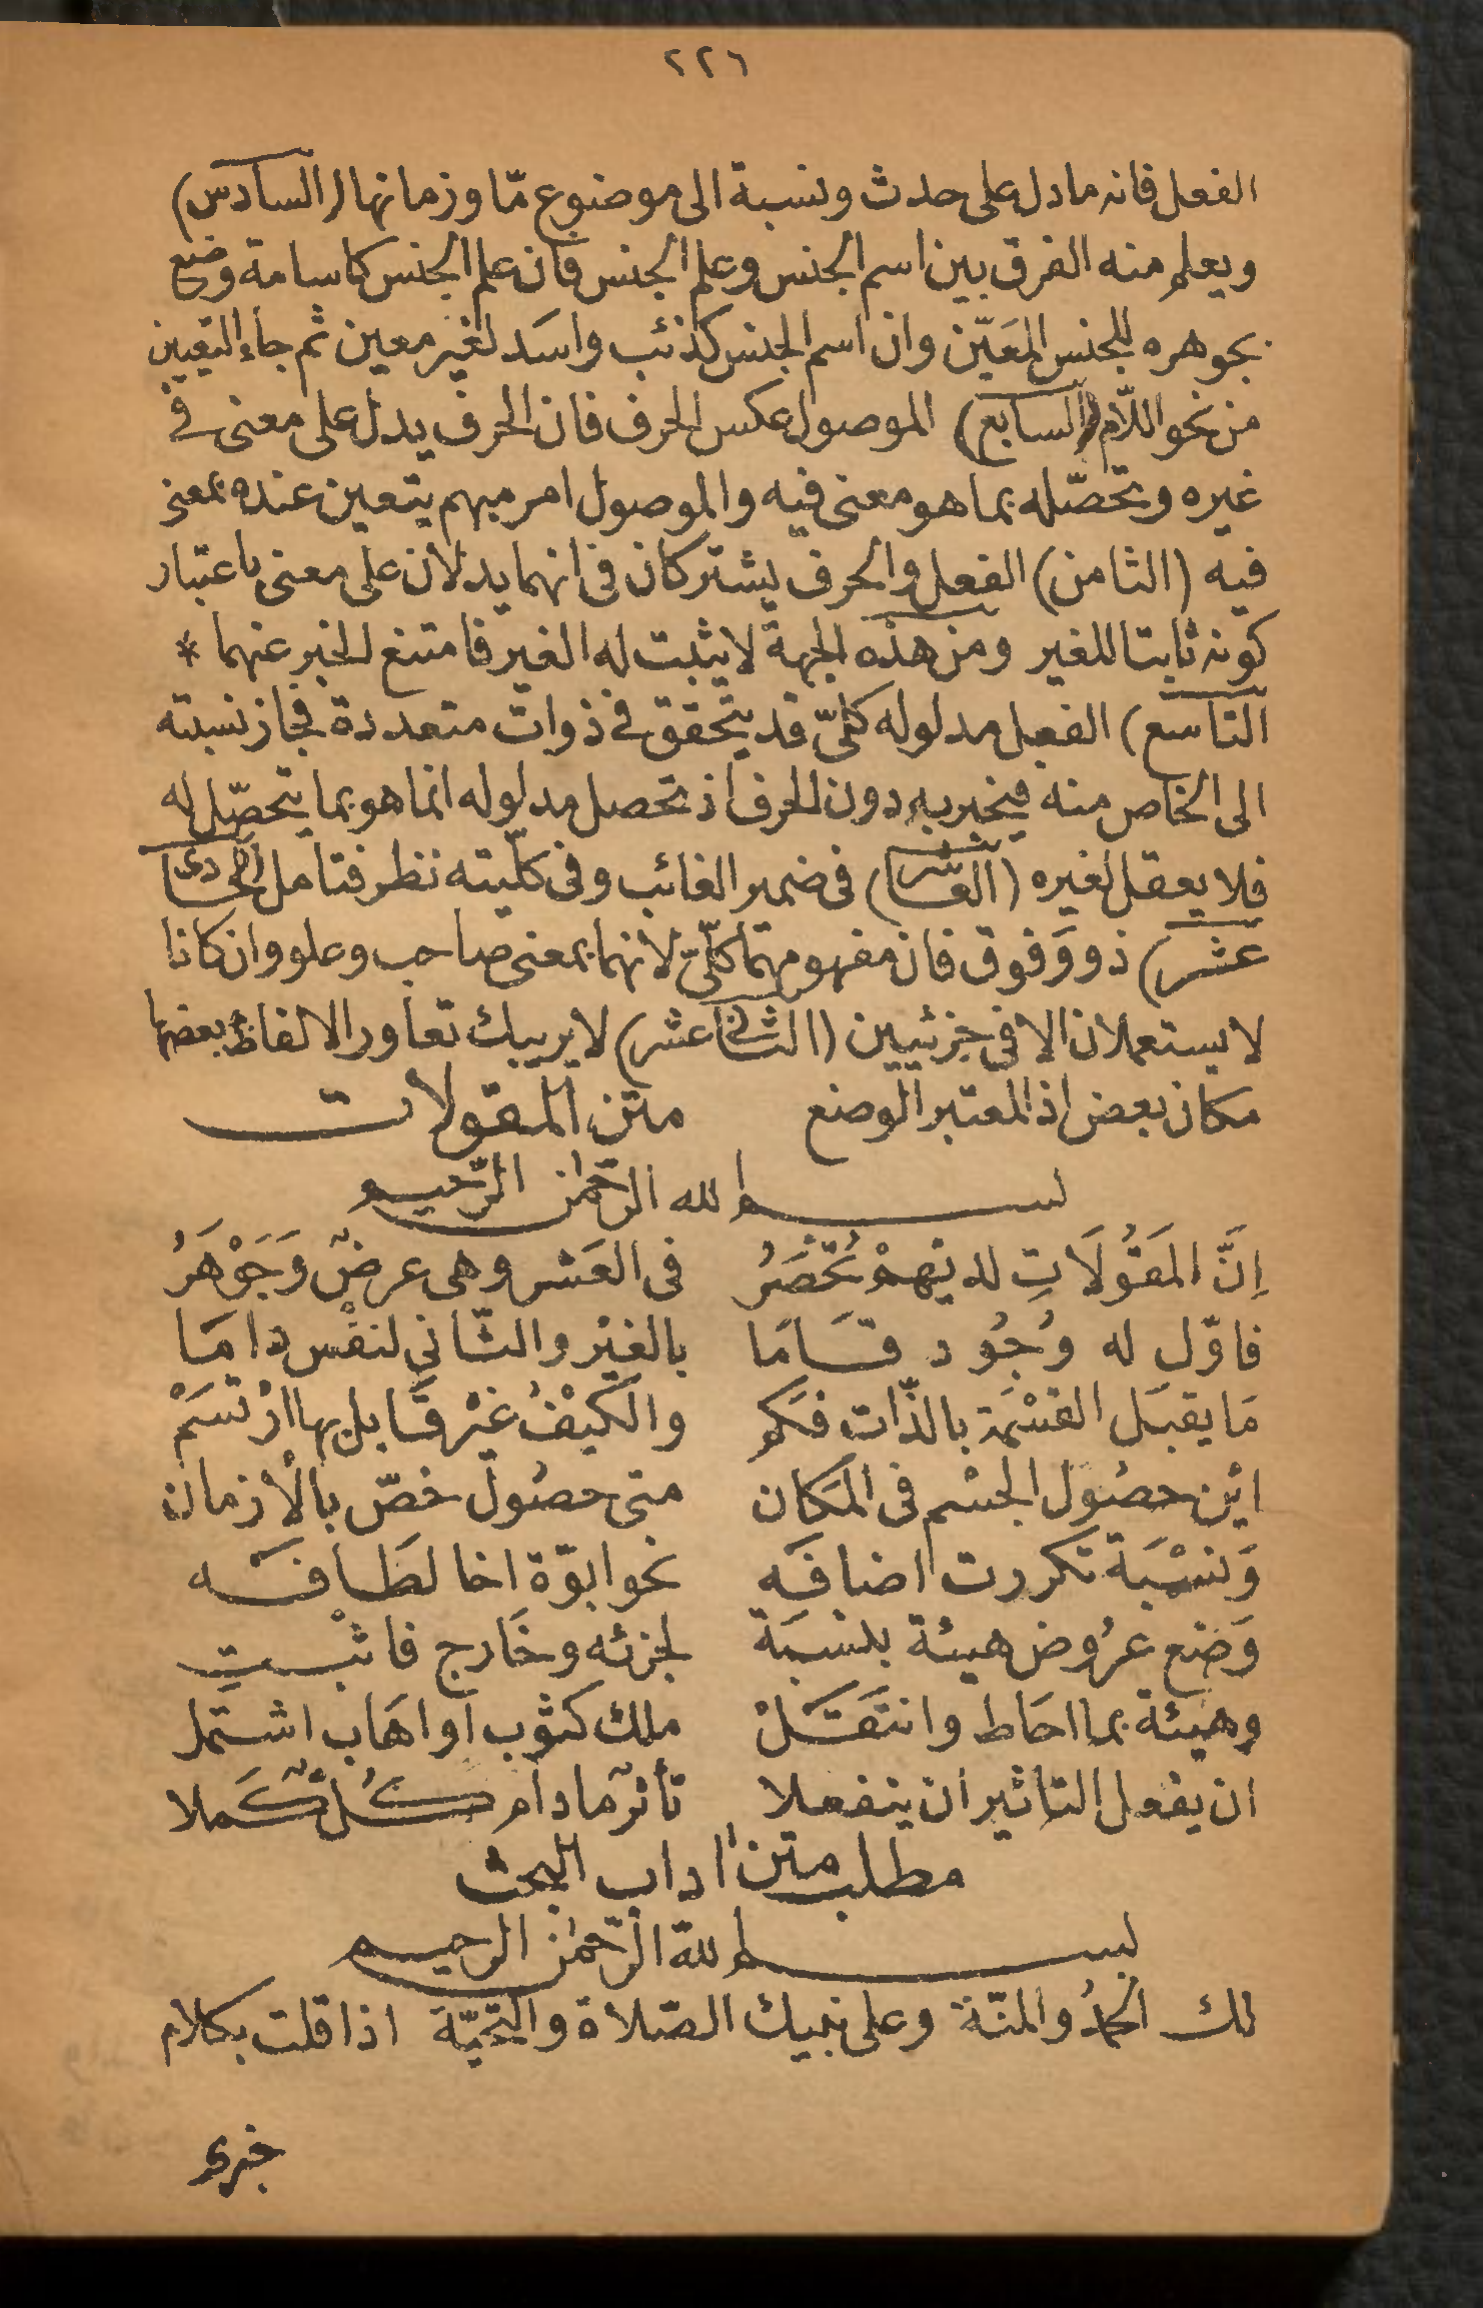 ٢٢٦
الفعل فانه مادل على حدث ونسبة الى موضوع مّا وزمانها (السادس)
ويعلم منه الفرق بين اسم الجنس وعلم الجنس فان علم الجنس كاسامة وضع
بجوهره للجنس المعَيّن وان اسم الجنس كذئب واسَد لغير معين ثم جاء التعيين
من نحو اللّام (السابع) الموصول عكس الحرف فان الحرف يدل على معنى فى
غيره وتحصّله بما هو معنى فيه والموصول امر مبهم يتعين عنده بمعنى
فيه (الثامن) الفعل والحرف يشتركان فى انهما يدلان على معنى باعتبار
كونه ثابتا للغير ومن هذه الجهة لا يثبت له الغير فامتنع الخبر عنهما *
التاسع) الفعل مدلوله كلىّ قد يتحقق فى ذوات متعددة فجاز نسبته
الى الخاص منه فيخبر به دون الحرف اذ تحصل مدلوله انما هو بما يتحصّل له
فلا يعقل لغيره (العاشر) فى ضمير الغائب وفى كلّيته نظر فتامل الحادى
عشر) ذو وَفوق فان مفهومهما كلّىّ لانهما بمعنى صاحب وعلو وان كانا
لا يستعملان الا فى جزئيين (الثانى عشر) لا يريبك تعاور الالفاظ بعضها
مكان بعض اذ المعتبر الوضع متن المقولات
بسم الله الرّحمٰن الرّحيم
اِنَّ المَقُولَاتِ لديْهِمْ تُحْصَرُ فى العَشر وهى عرضٌ وَجَوْهَرُ
فاوّل له وُجُود قَامَا بالغيْر والثّاني لنفْس دامَا
مَا يقبَل القسْمَة بالذّات فكم والكيْفُ غيْر قَابل بها ارْتسَمْ
ايْن حصُول الجسْم فى المَكان متى حصُول خصّ بالْأزمان
وَنسْبَة تكررت اضافَه نحو ابوّة اخا لطَافَه
وَضع عرُوض هيئة بنسبَة لجزئه وخَارج فاثْبت
وهيئة بما احَاط وانتَقَلْ ملك كثوب او اهَاب اشتَمل
ان يفعل التاثير ان ينفعلا تأثر ما دام كُلّ كَملا
مطلب متن اداب البحث
بسم الله الرّحمٰن الرحيم
لك الحمدُ والمنّة وعلى نبيك الصّلاة والتحيّة اذا قلت بكلام
خبرى